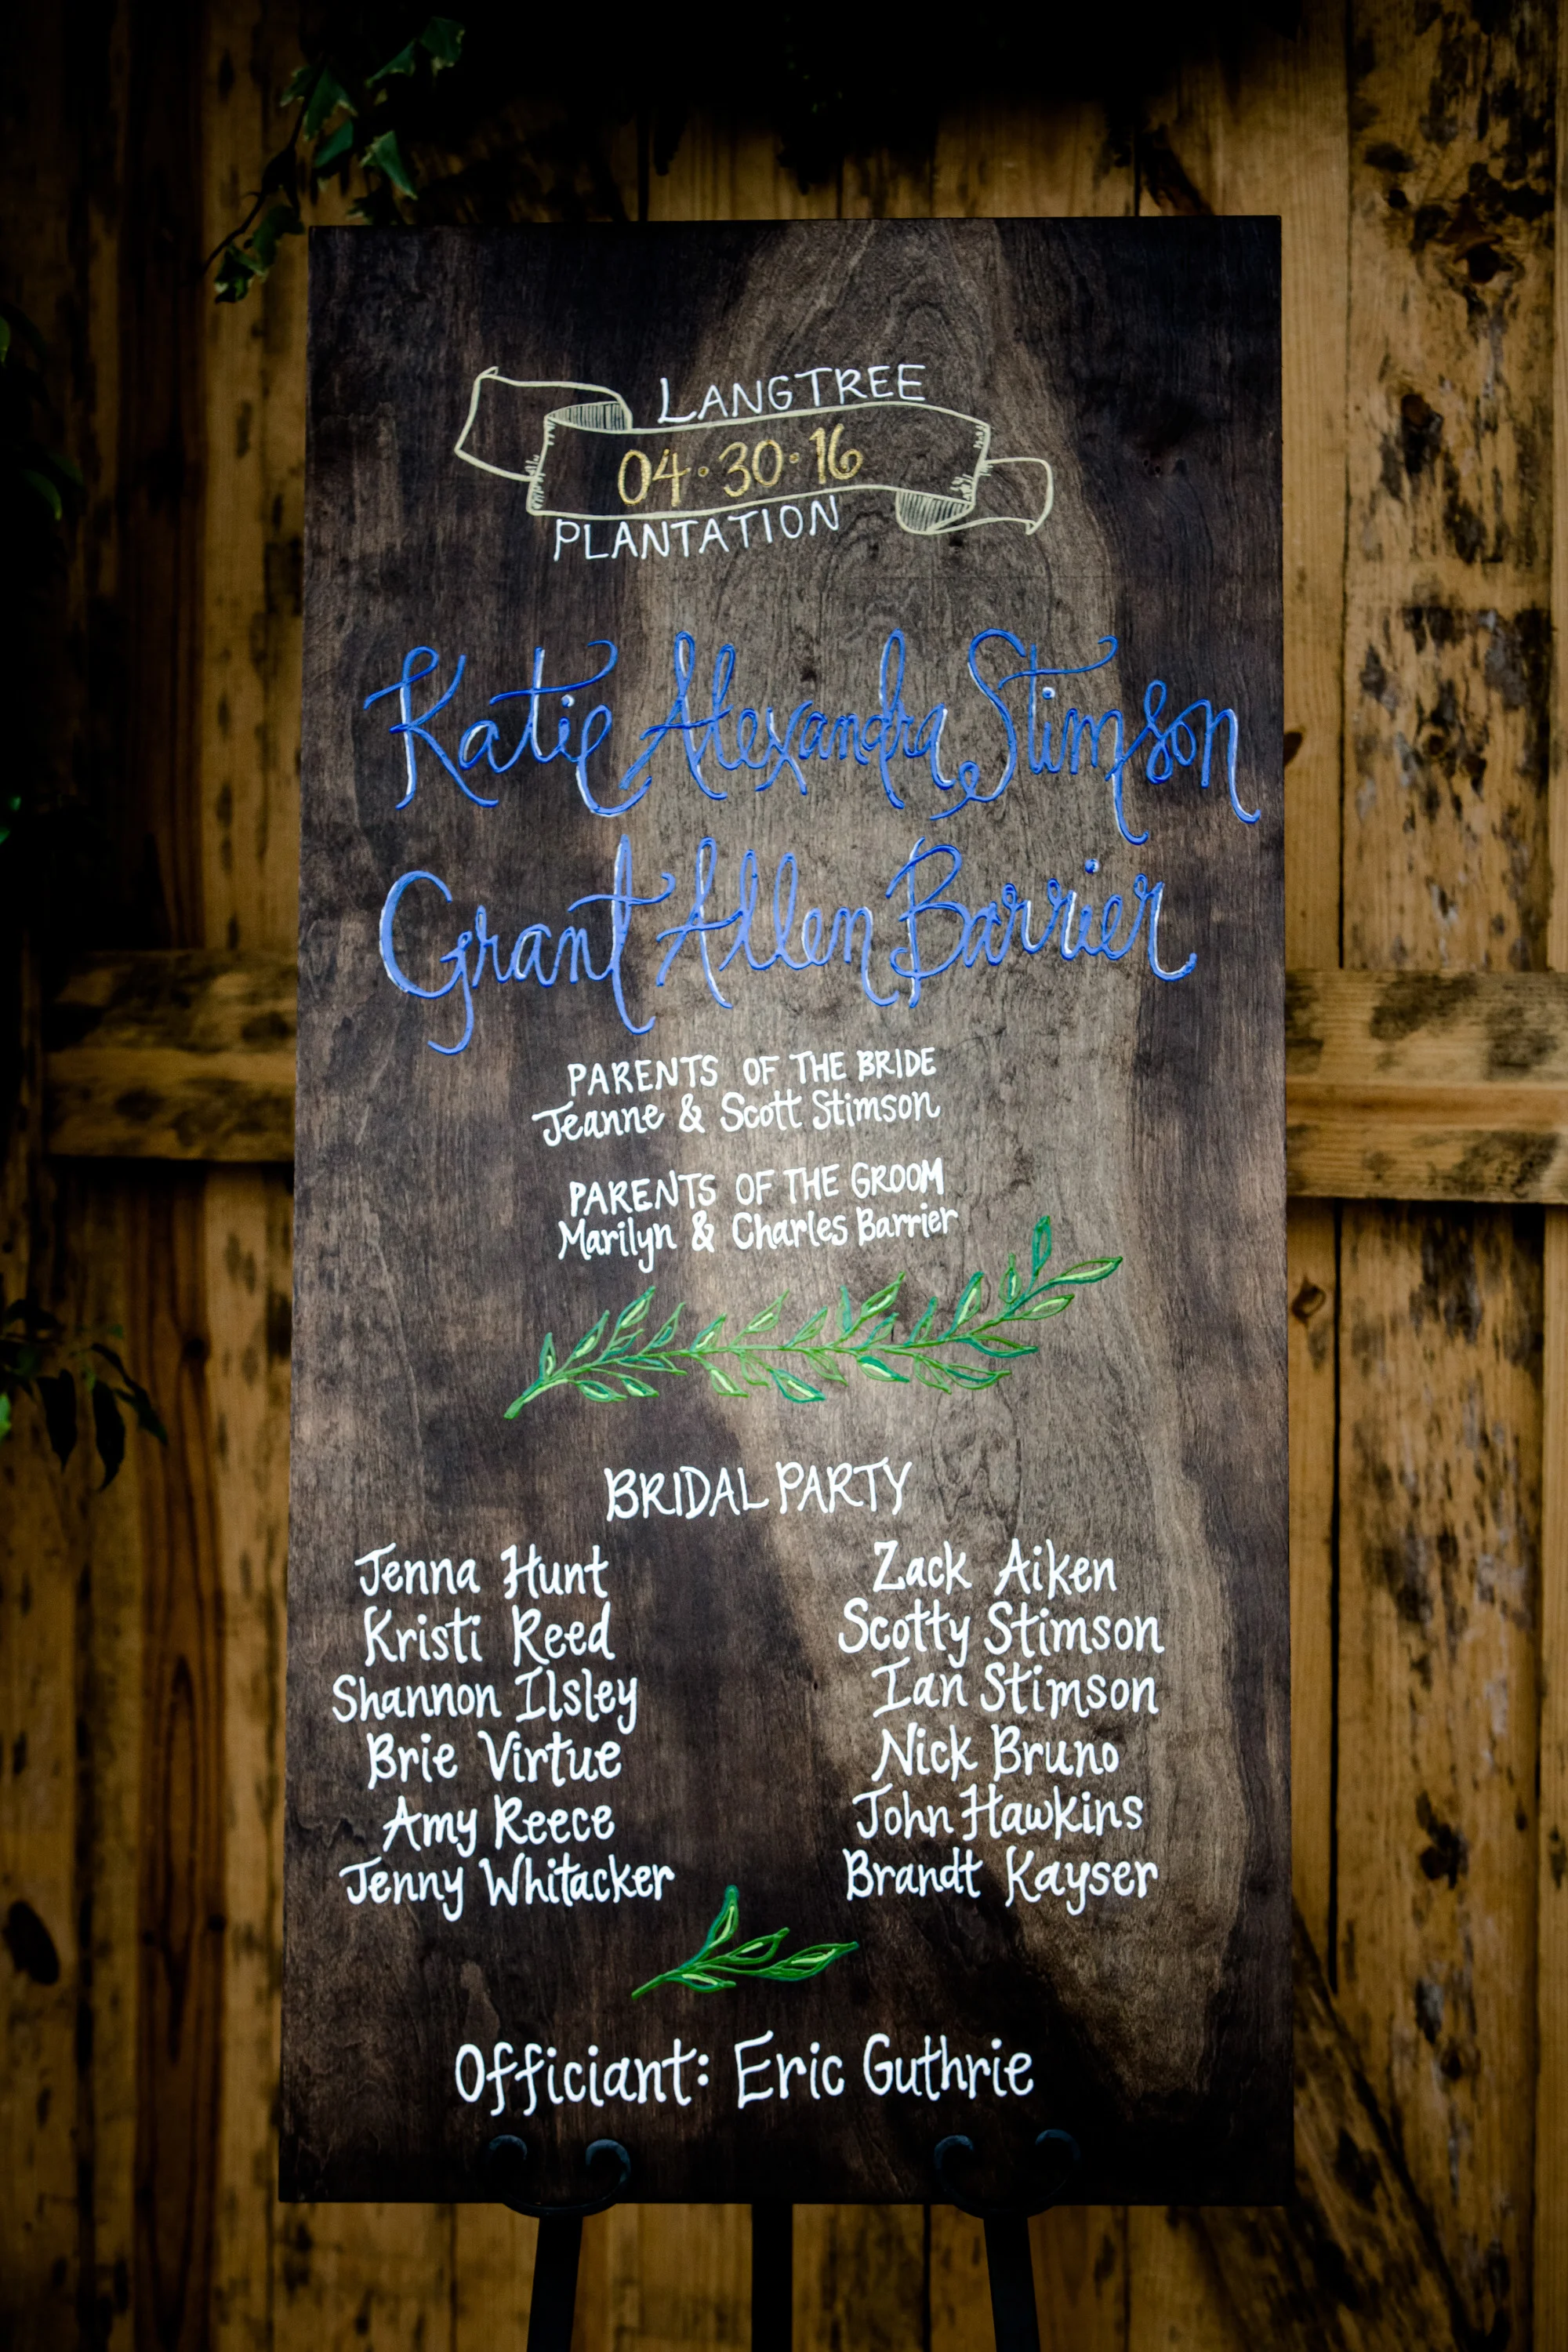 LANGTREE
04·30·16
PLANTATION
Katie Alexandra Stimson
Grant Allen Barrier
PARENTS OF THE BRIDE
Jeanne & Scott Stimson
PARENTS OF THE GROOM
Marilyn & Charles Barrier
BRIDAL PARTY
Jenna Hunt Zack Aiken
Kristi Reed Scotty Stimson
Shannon Ilsley Ian Stimson
Brie Virtue Nick Bruno
Amy Reece John Hawkins
Jenny Whitacker Brandt Kayser
Officiant: Eric Guthrie